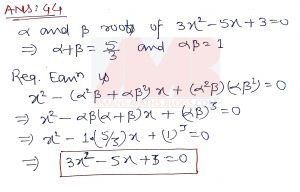 ANS: 44
α and β roots of 3x² - 5x + 3 = 0
⇒ α+β = 5/3 and αβ = 1
Req. Eqn is
x² - (α²β + αβ²)x + (α²β)(αβ²) = 0
⇒ x² - αβ(α+β)x + (αβ)³ = 0
⇒ x² - 1•(5/3)x + (1)³ = 0
⇒ 3x² - 5x + 3 = 0